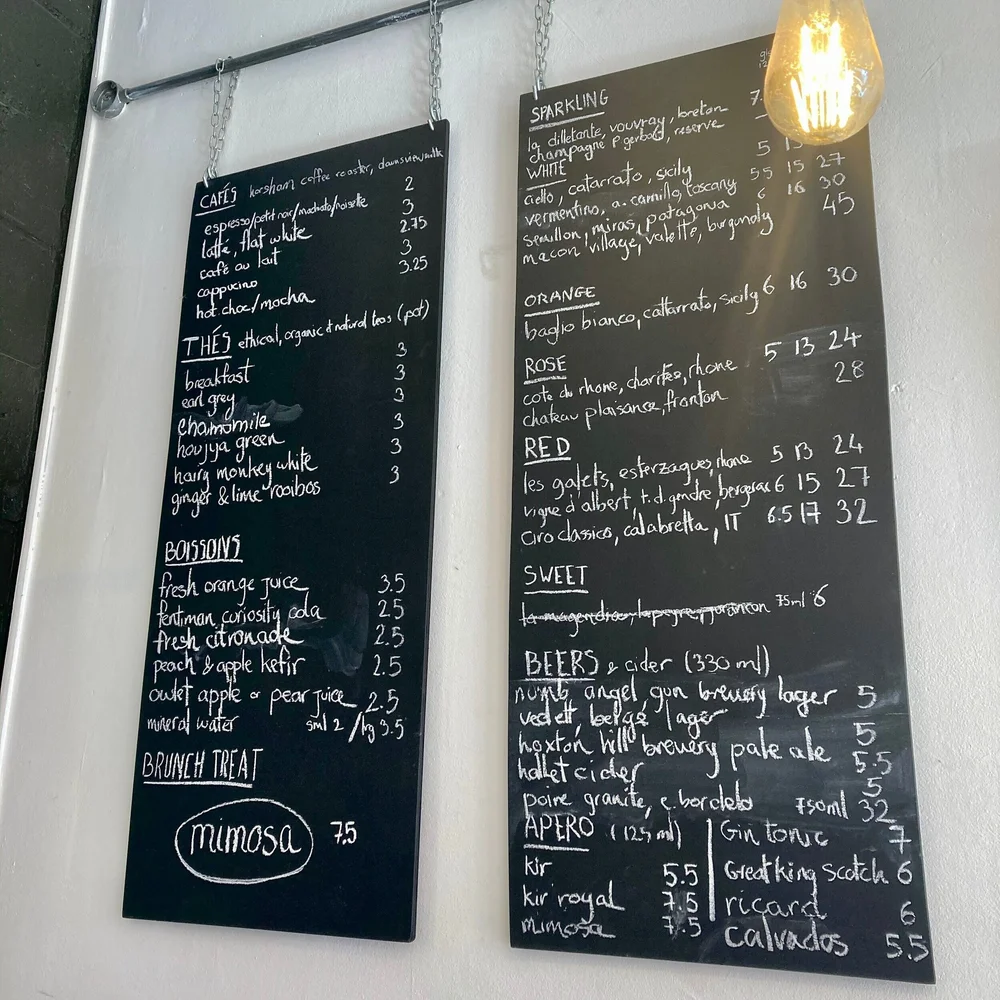 CAFÉS horsham coffee roaster, downsview milk
espresso/petit noir/machiato/noisette 2
latté, flat white 3
café au lait 2.75
cappucino 3
hot choc/mocha 3.25
THÉS ethical, organic & natural teas (pot)
breakfast 3
earl grey 3
chamomile 3
houjya green 3
hairy monkey white 3
ginger & lime rooibos 3
BOISSONS
fresh orange juice 3.5
fentiman curiosity cola 2.5
fresh citronade 2.5
peach & apple kefir 2.5
owlet apple or pear juice 2.5
mineral water sml 2 / lrg 3.5
BRUNCH TREAT
mimosa 7.5
SPARKLING
la dilletante, vouvray, breton
champagne p gerbard, reserve
WHITE
ciello, catarrato, sicily 5
vermentino, a. camillo, toscany 5.5 15 27
semillon, miras, patagonia 6 16 30
macon village, valette, burgundy 45
ORANGE
baglio bianco, cattarrato, sicily 6 16 30
ROSE
cote du rhone, charites, rhone 5 13 24
chateau plaisance, fronton 28
RED
les galets, esterzagues, rhone 5 13 24
vigne d'albert, t.d.gendre, bergerac 6 15 27
ciro classico, calabretta, IT 6.5 17 32
SWEET
75ml 6
BEERS & cider (330 ml)
numb angel, gun brewery lager 5
vedett, belge lager 5
hoxton hill brewery pale ale 5.5
hallet cider 5
poire granite, e. bordelet 750ml 32
APERO (125 ml)
kir 5.5
kir royal 7.5
mimosa 7.5
Gin tonic 7
Great king scotch 6
ricard 6
calvados 5.5